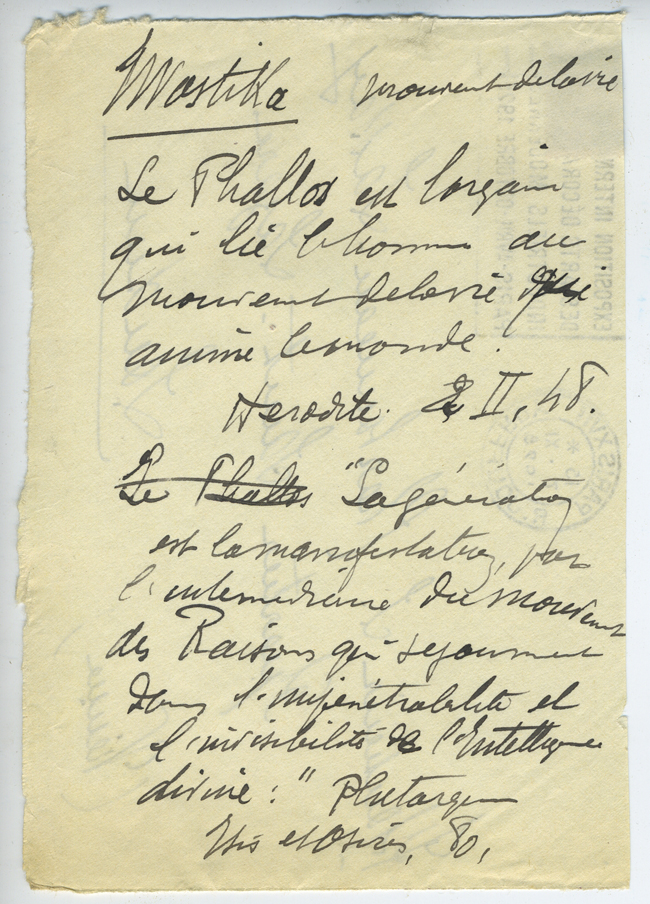 Swastika mouvement de la vie
Le Phallos est l'organe
qui lie l'homme au
mouvement de la vie qui
anime le monde.
Herodite. II, 48.
Le Phallos "La génération
est la manifestation, par
l'intermédiaire du mouvement
des Raisons qui séjournent
dans l'impénétrabilité et
l'invisibilité de l'Intelligence
divine." Plutarque
Isis et Osiris, 80,